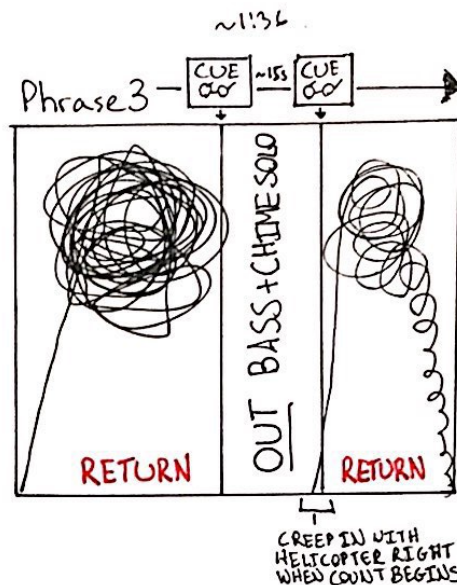 ~1:36
Phrase 3
CUE
~15s
CUE
OUT BASS+CHIME SOLO
RETURN
RETURN
CREEP IN WITH
HELICOPTER RIGHT
WHEN COUNT BEGINS